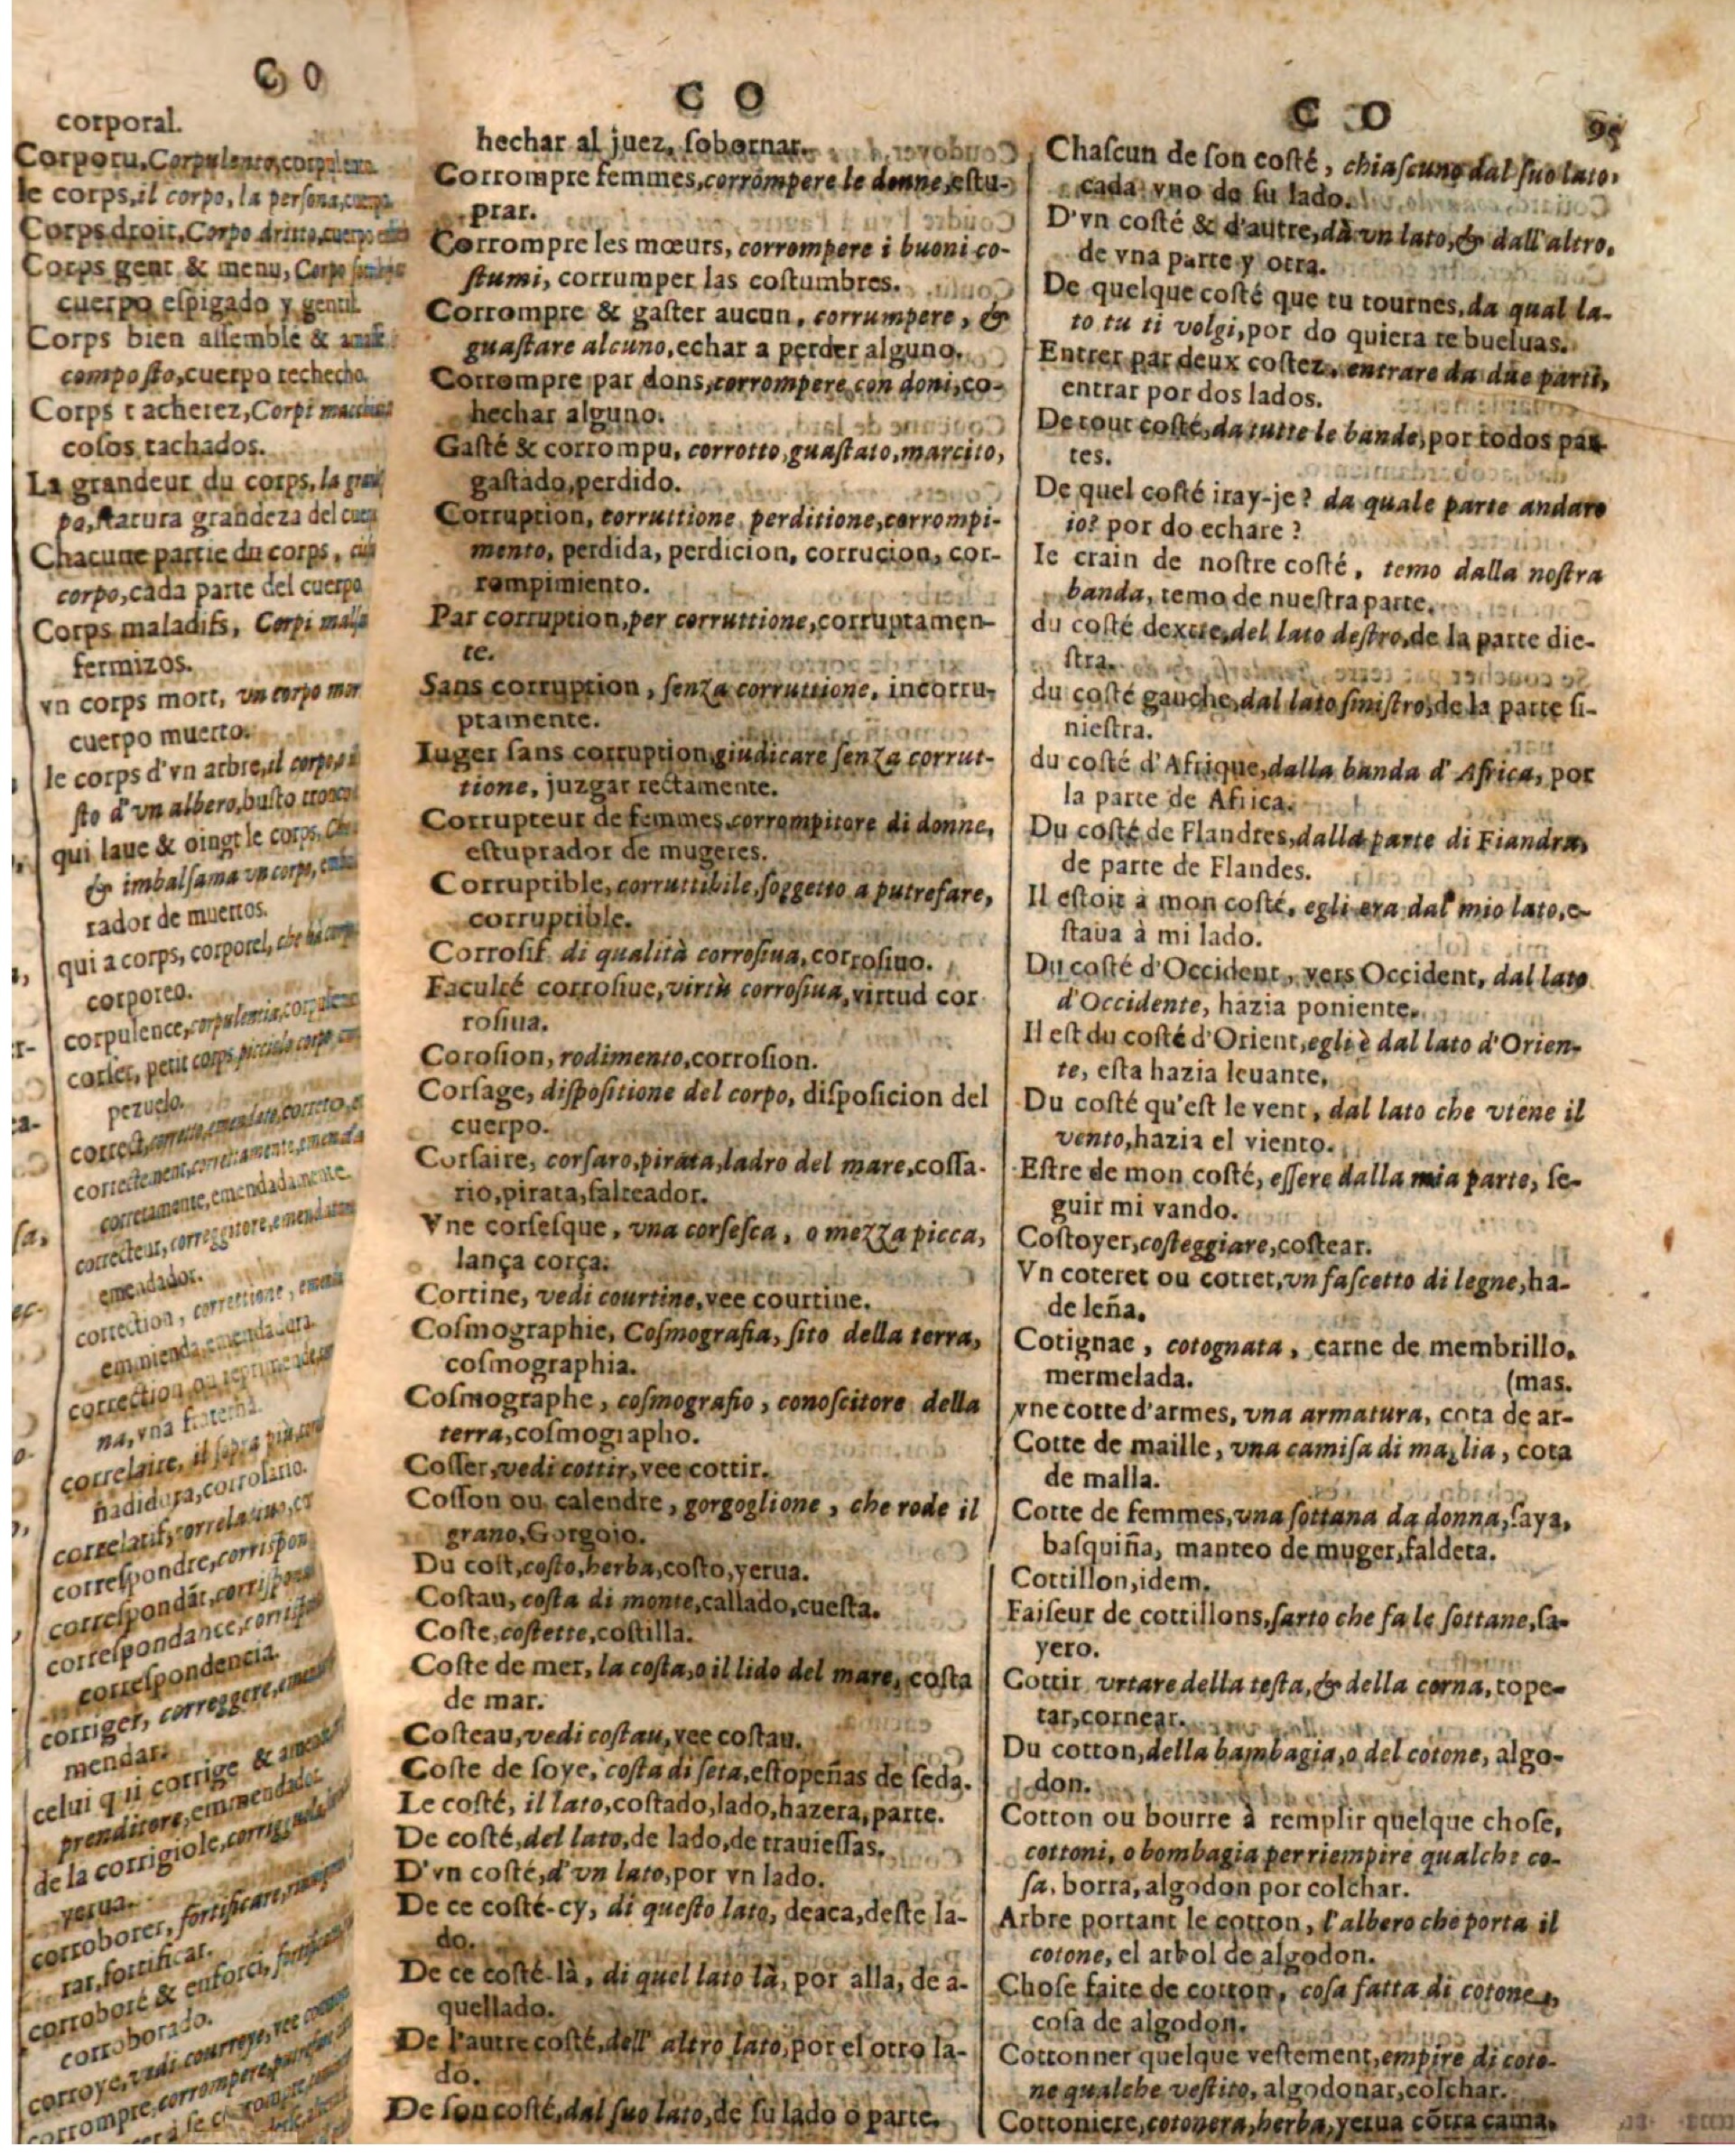 C O
corporal.
Corporu, Corpulento, corpulento
le corps, il corpo, la persona, cuerpo
Corps droit, Corpo dritto, cuerpo
Corps gent & menu, Corpo
cuerpo eſpigado y gentil
Corps bien aſſemblé &
compoſto, cuerpo rechecho.
Corps tacherez, Corpi
coſos tachados.
La grandeur du corps, la
po, ſtatura grandeza del
Chacune partie du corps,
corpo, cada parte del cuerpo
Corps maladifs, Corpi
fermizos.
vn corps mort, vn corpo
cuerpo muerto.
le corps d'vn arbre, il
ſto d'vn albero, buſto
qui laue & oingt le corps,
& imbalſama vn corpo,
rador de muertos.
qui a corps, corporel, che
corporeo.
corpulence, corpulentia,
corſet, petit corps, picciolo corpo,
pezuelo.
correct, corretto, emendato, correto,
correctement, correttamente,
corretamente, emendadamente.
correcteur, correggitore,
emendador.
correction, correttione,
emmienda, emendadura.
correction ou
na, vna fraterna.
correlaire, il
ñadidura, corrolario.
correlatif, correlatiuo,
correſpondre,
correſpondāt,
correſpondance,
correſpondencia.
corriger, correggere,
mendar.
celui qui corrige &
prenditore, emmendador.
de la corrigiole,
yerua.
corroborer, fortificare,
rar, fortificar.
corroboré & enforci,
corroborado.
corroye, vedi courroye, vee
corrompre, corrompere,
C O
hechar al juez, ſobornar.
Corrompre femmes, corrompere le donne, eſtu-
prar.
Corrompre les mœurs, corrompere i buoni co-
ſtumi, corrumper las coſtumbres.
Corrompre & gaſter aucun, corrumpere, &
guaſtare alcuno, echar a perder alguno.
Corrompre par dons, corrompere con doni, co-
hechar alguno.
Gaſté & corrompu, corrotto, guaſtato, marcito,
gaſtado, perdido.
Corruption, corruttione, perditione, corrompi-
mento, perdida, perdicion, corrucion, cor-
rompimiento.
Par corruption, per corruttione, corruptamen-
te.
Sans corruption, ſenza corruttione, incorru-
ptamente.
Iuger ſans corruption, giudicare ſenza corrut-
tione, juzgar rectamente.
Corrupteur de femmes, corrompitore di donne,
eſtuprador de mugeres.
Corruptible, corruttibile, ſoggetto a putrefare,
corruptible.
Corroſif di qualità corroſiua, corroſiuo.
Faculté corroſiue, virtù corroſiua, virtud cor
roſiua.
Coroſion, rodimento, corroſion.
Corſage, diſpoſitione del corpo, diſpoſicion del
cuerpo.
Corſaire, corſaro, pirata, ladro del mare, coſſa-
rio, pirata, ſalteador.
Vne corſeſque, vna corſeſca, o mezza picca,
lança corça.
Cortine, vedi courtine, vee courtine.
Coſmographie, Coſmografia, ſito della terra,
coſmographia.
Coſmographe, coſmografio, conoſcitore della
terra, coſmographo.
Coſſer, vedi cottir, vee cottir.
Coſſon ou calendre, gorgoglione, che rode il
grano, Gorgoio.
Du coſt, coſto, herba, coſto, yerua.
Coſtau, coſta di monte, callado, cueſta.
Coſte, coſtette, coſtilla.
Coſte de mer, la coſta, o il lido del mare, coſta
de mar.
Coſteau, vedi coſtau, vee coſtau.
Coſte de ſoye, coſta di ſeta, eſtopeñas de ſeda.
Le coſté, il lato, coſtado, lado, hazera, parte.
De coſté, del lato, de lado, de trauieſſas.
D'vn coſté, d'vn lato, por vn lado.
De ce coſté-cy, di queſto lato, deaca, deſte la-
do.
De ce coſté-là, di quel lato là, por alla, de a-
quellado.
De l'autre coſté, dell' altro lato, por el otro la-
do.
De ſon coſté, dal ſuo lato, de ſu lado o parte.
C O 95
Chaſcun de ſon coſté, chiaſcuno dal ſuo lato,
cada vno do ſu lado.
D'vn coſté & d'autre, dà vn lato, & dall'altro,
de vna parte y otra.
De quelque coſté que tu tournes, da qual la-
to tu ti volgi, por do quiera te bueluas.
Entrer par deux coſtez, entrare da due parti,
entrar por dos lados.
De tout coſté, da tutte le bande, por todos par
tes.
De quel coſté iray-je? da quale parte andaro
io? por do echare?
Ie crain de noſtre coſté, temo dalla noſtra
banda, temo de nueſtra parte.
du coſté dextre, del lato deſtro, de la parte die-
ſtra.
du coſté gauche, dal lato ſiniſtro, de la parte ſi-
nieſtra.
du coſté d'Afrique, dalla banda d'Africa, por
la parte de Africa.
Du coſté de Flandres, dalla parte di Fiandra,
de parte de Flandes.
Il eſtoit à mon coſté, egli era dal mio lato, e-
ſtaua à mi lado.
Du coſté d'Occident, vers Occident, dal lato
d'Occidente, hazia poniente.
Il eſt du coſté d'Orient, egli è dal lato d'Orien-
te, eſta hazia leuante.
Du coſté qu'eſt le vent, dal lato che viene il
vento, hazia el viento.
Eſtre de mon coſté, eſſere dalla mia parte, ſe-
guir mi vando.
Coſtoyer, coſteggiare, coſtear.
Vn coteret ou cotret, vn faſcetto di legne, ha-
de leña.
Cotignac, cotognata, carne de membrillo,
mermelada. (mas.
vne cotte d'armes, vna armatura, cota de ar-
Cotte de maille, vna camiſa di maglia, cota
de malla.
Cotte de femmes, vna ſottana da donna, ſaya,
baſquiña, manteo de muger, faldeta.
Cottillon, idem.
Faiſeur de cottillons, ſarto che fa le ſottane, ſa-
yero.
Cottir vrtare della teſta, & della corna, tope-
tar, cornear.
Du cotton, della bambagia, o del cotone, algo-
don.
Cotton ou bourre à remplir quelque choſe,
cottoni, o bombagia per riempire qualche co-
ſa, borra, algodon por colchar.
Arbre portant le cotton, l'albero che porta il
cotone, el arbol de algodon.
Choſe faite de cotton, coſa fatta di cotone,
coſa de algodon.
Cottonner quelque veſtement, empire di coto-
ne qualche veſtito, algodonar, colchar.
Cottoniere, cotonera, herba, yerua cōtra cama.